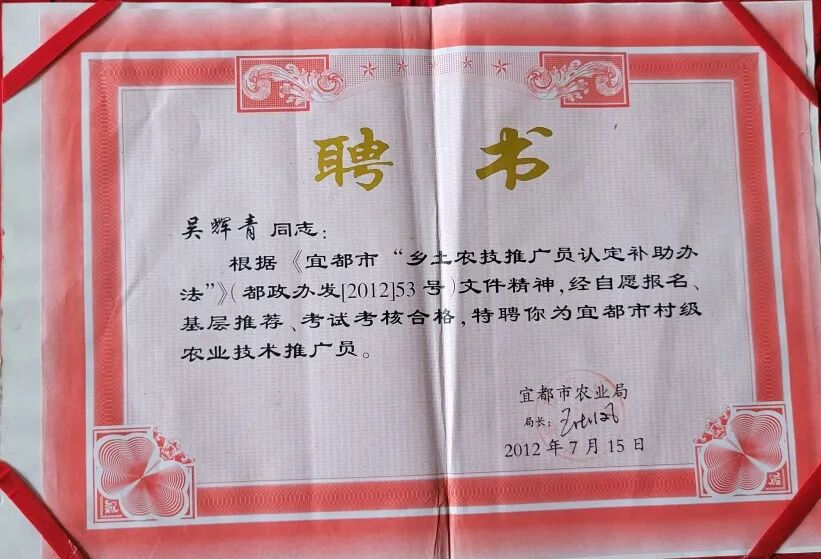 聘书
吴辉青 同志：
根据《宜都市“乡土农技推广员认定补助办
法”》(都政办发[2012]53号)文件精神,经自愿报名、
基层推荐、考试考核合格,特聘你为宜都市村级
农业技术推广员。
宜都市农业局
局长:
2012年7月15日